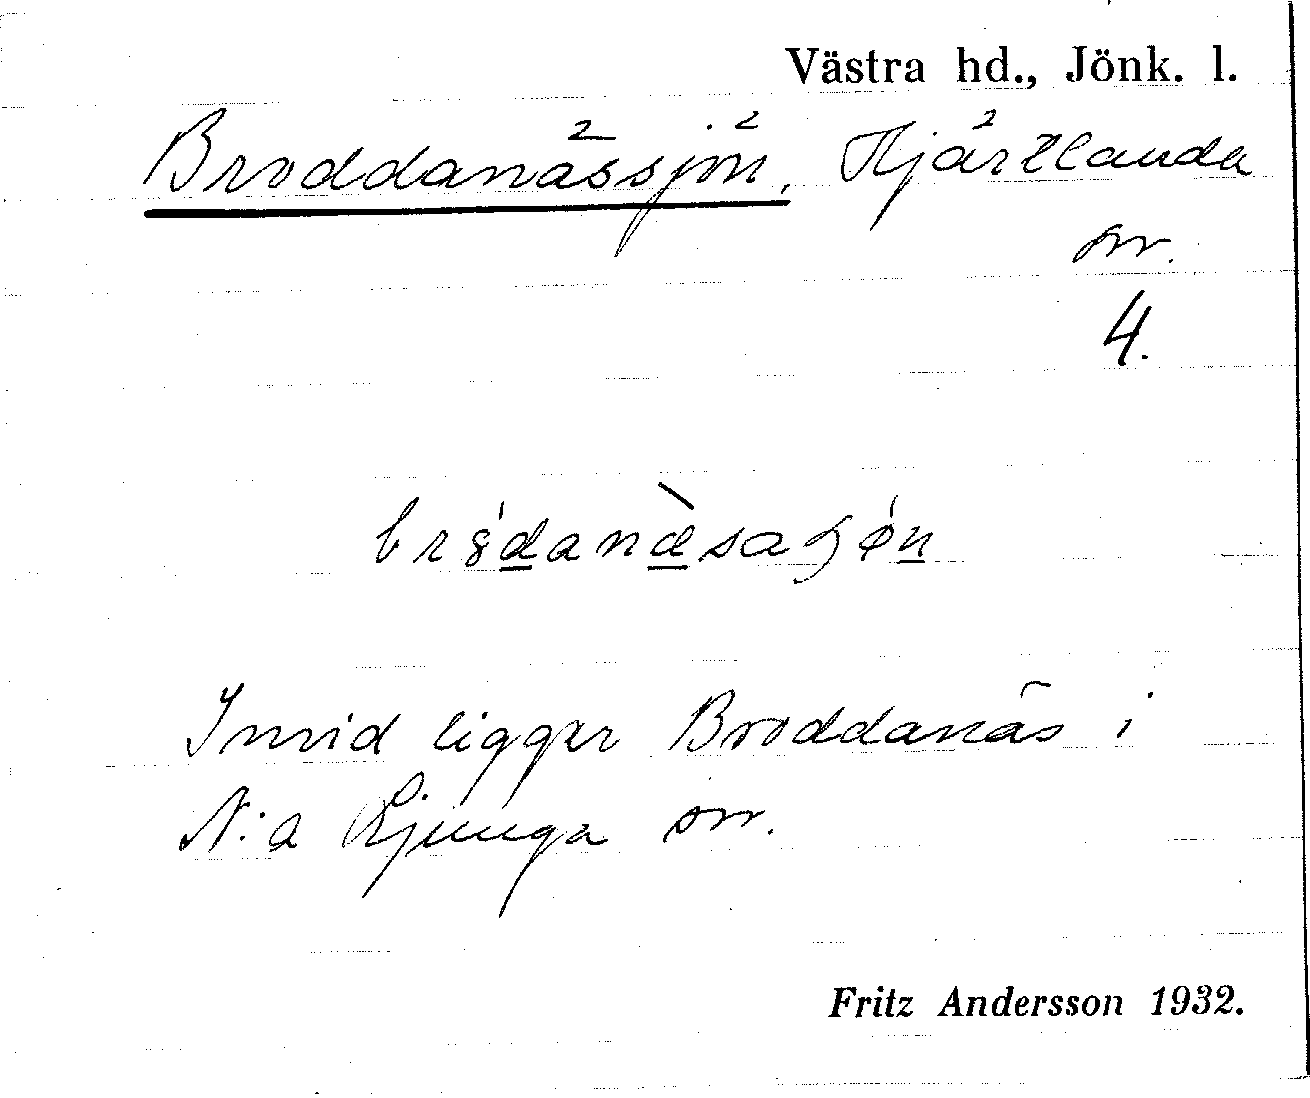 Västra hd., Jönk. l.
Broddanässjön, Hjärtlanda
sn.
4.
Invid ligger Broddanäs i
N:a Ljunga sn.
Fritz Andersson 1932.